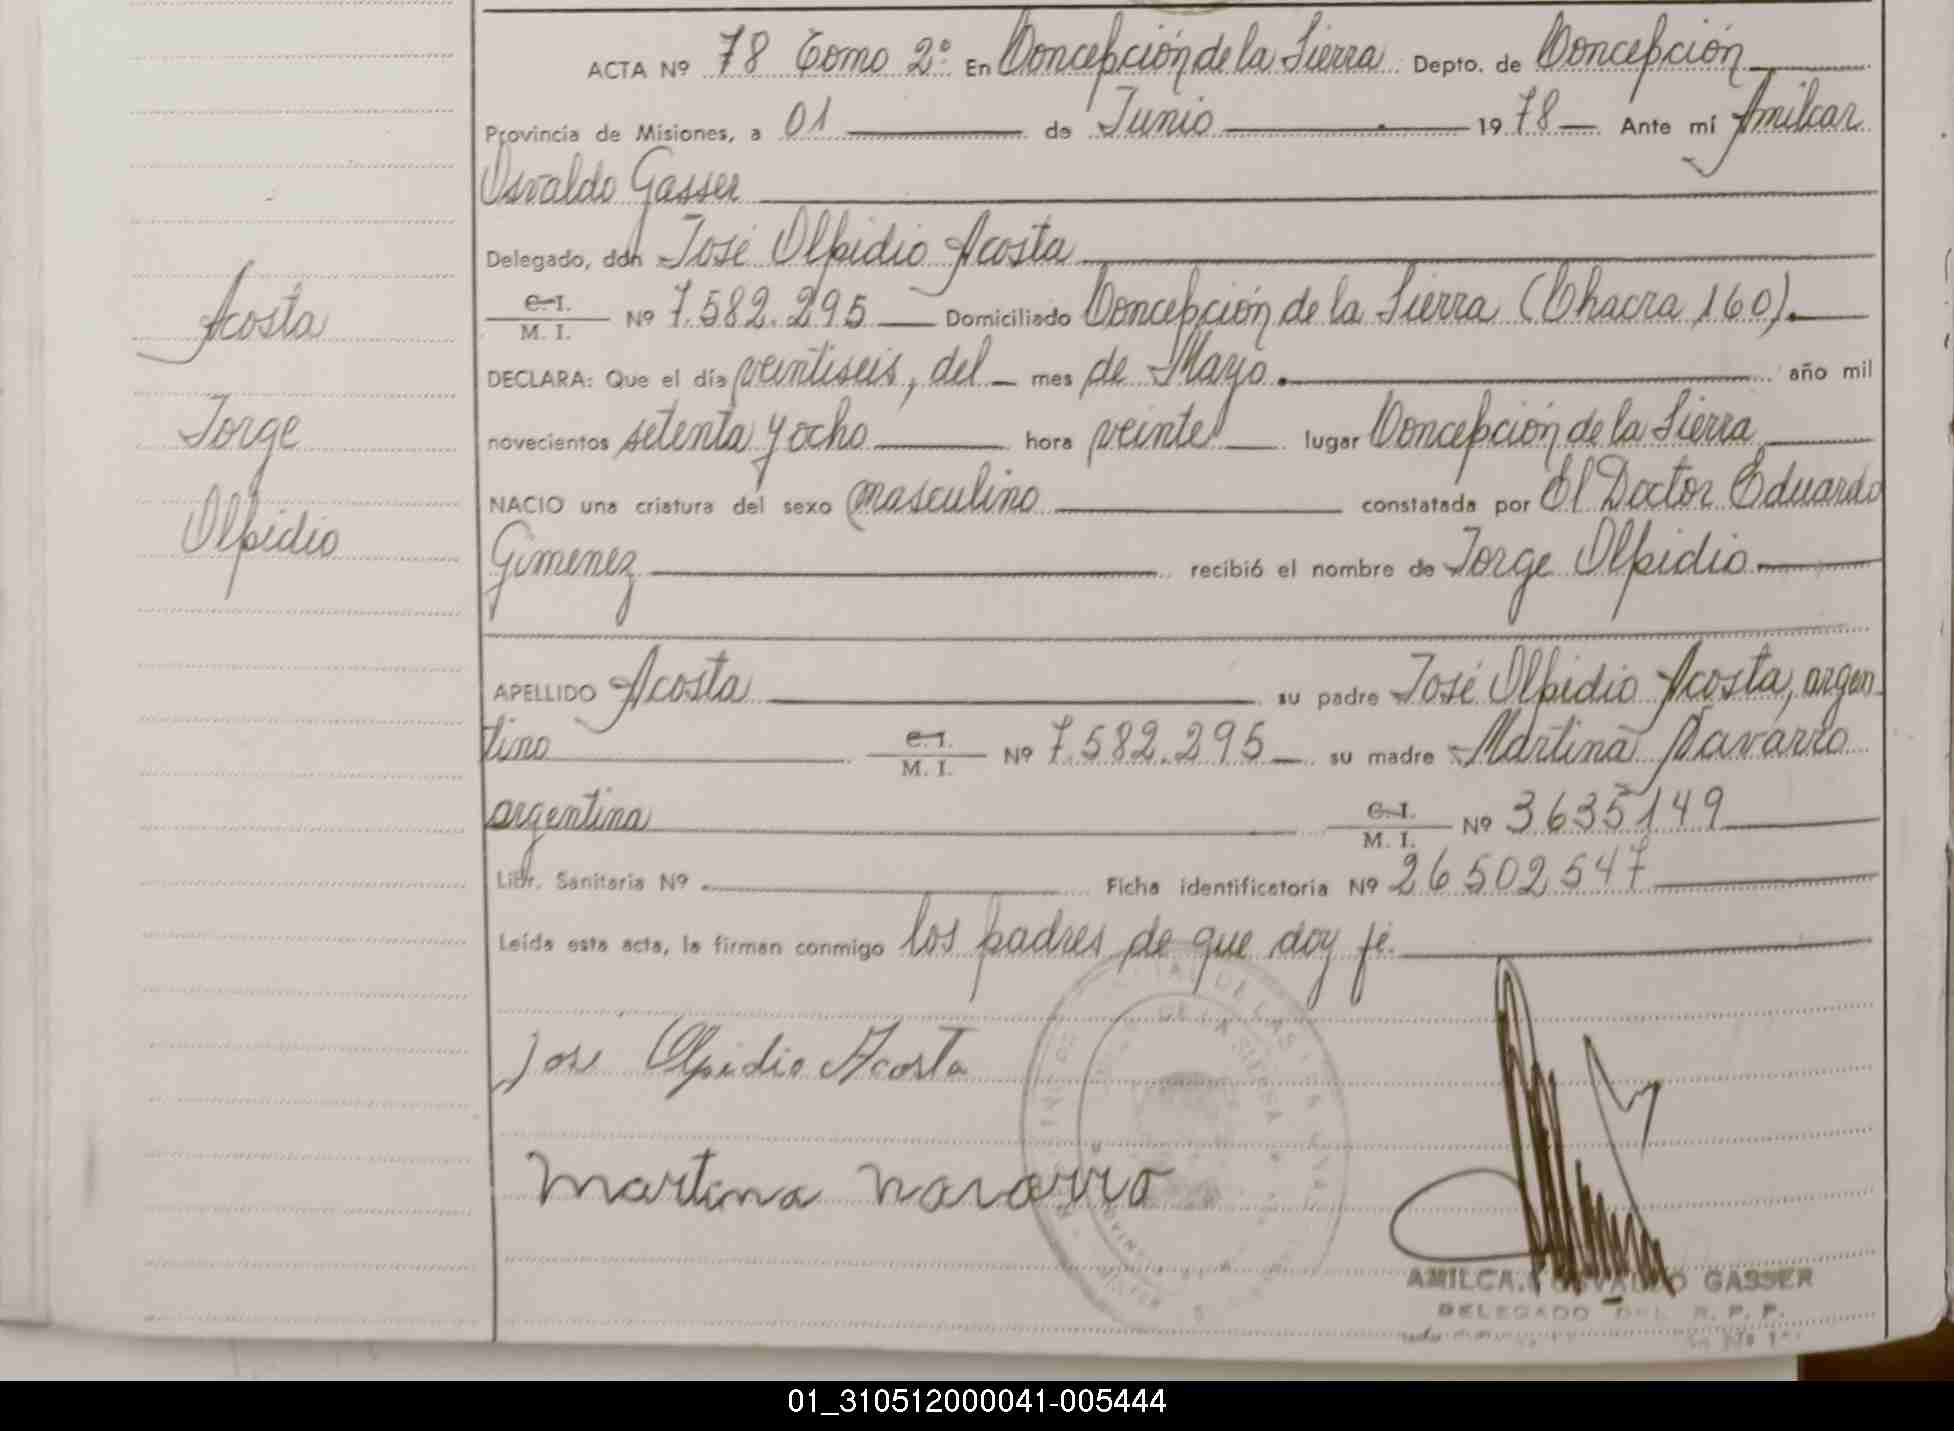 ACTA Nº 78 Tomo 2º En Concepción de la Sierra Depto. de Concepción
Provincia de Misiones, a 01 de Junio 1978 Ante mí Amilcar
Osvaldo Gasser
Delegado, don José Olpidio Acosta
C.I.
M. I. Nº 7.582.295 Domiciliado Concepción de la Sierra (Chacra 160).
DECLARA: Que el día veintiseis, del mes de Mayo. año mil
novecientos setenta y ocho hora veinte lugar Concepción de la Sierra
NACIO una criatura del sexo masculino constatada por El Doctor Eduardo
Gimenez recibió el nombre de Jorge Olpidio
APELLIDO Acosta su padre José Olpidio Acosta, argen
tino C.I. M. I. Nº 7.582.295 su madre Martina Navarro
argentina C.I. M. I. Nº 3635149
Libr. Sanitaria Nº Ficha identificatoria Nº 26502547
Leída esta acta, la firman conmigo los padres de que doy fé.
Acosta
Jorge
Olpidio
Jose Olpidio Acosta
Martina Navarro
DE LA SIERRA
AMILCAR OSVALDO GASSER
DELEGADO DEL R. P. P.
01_310512000041-005444